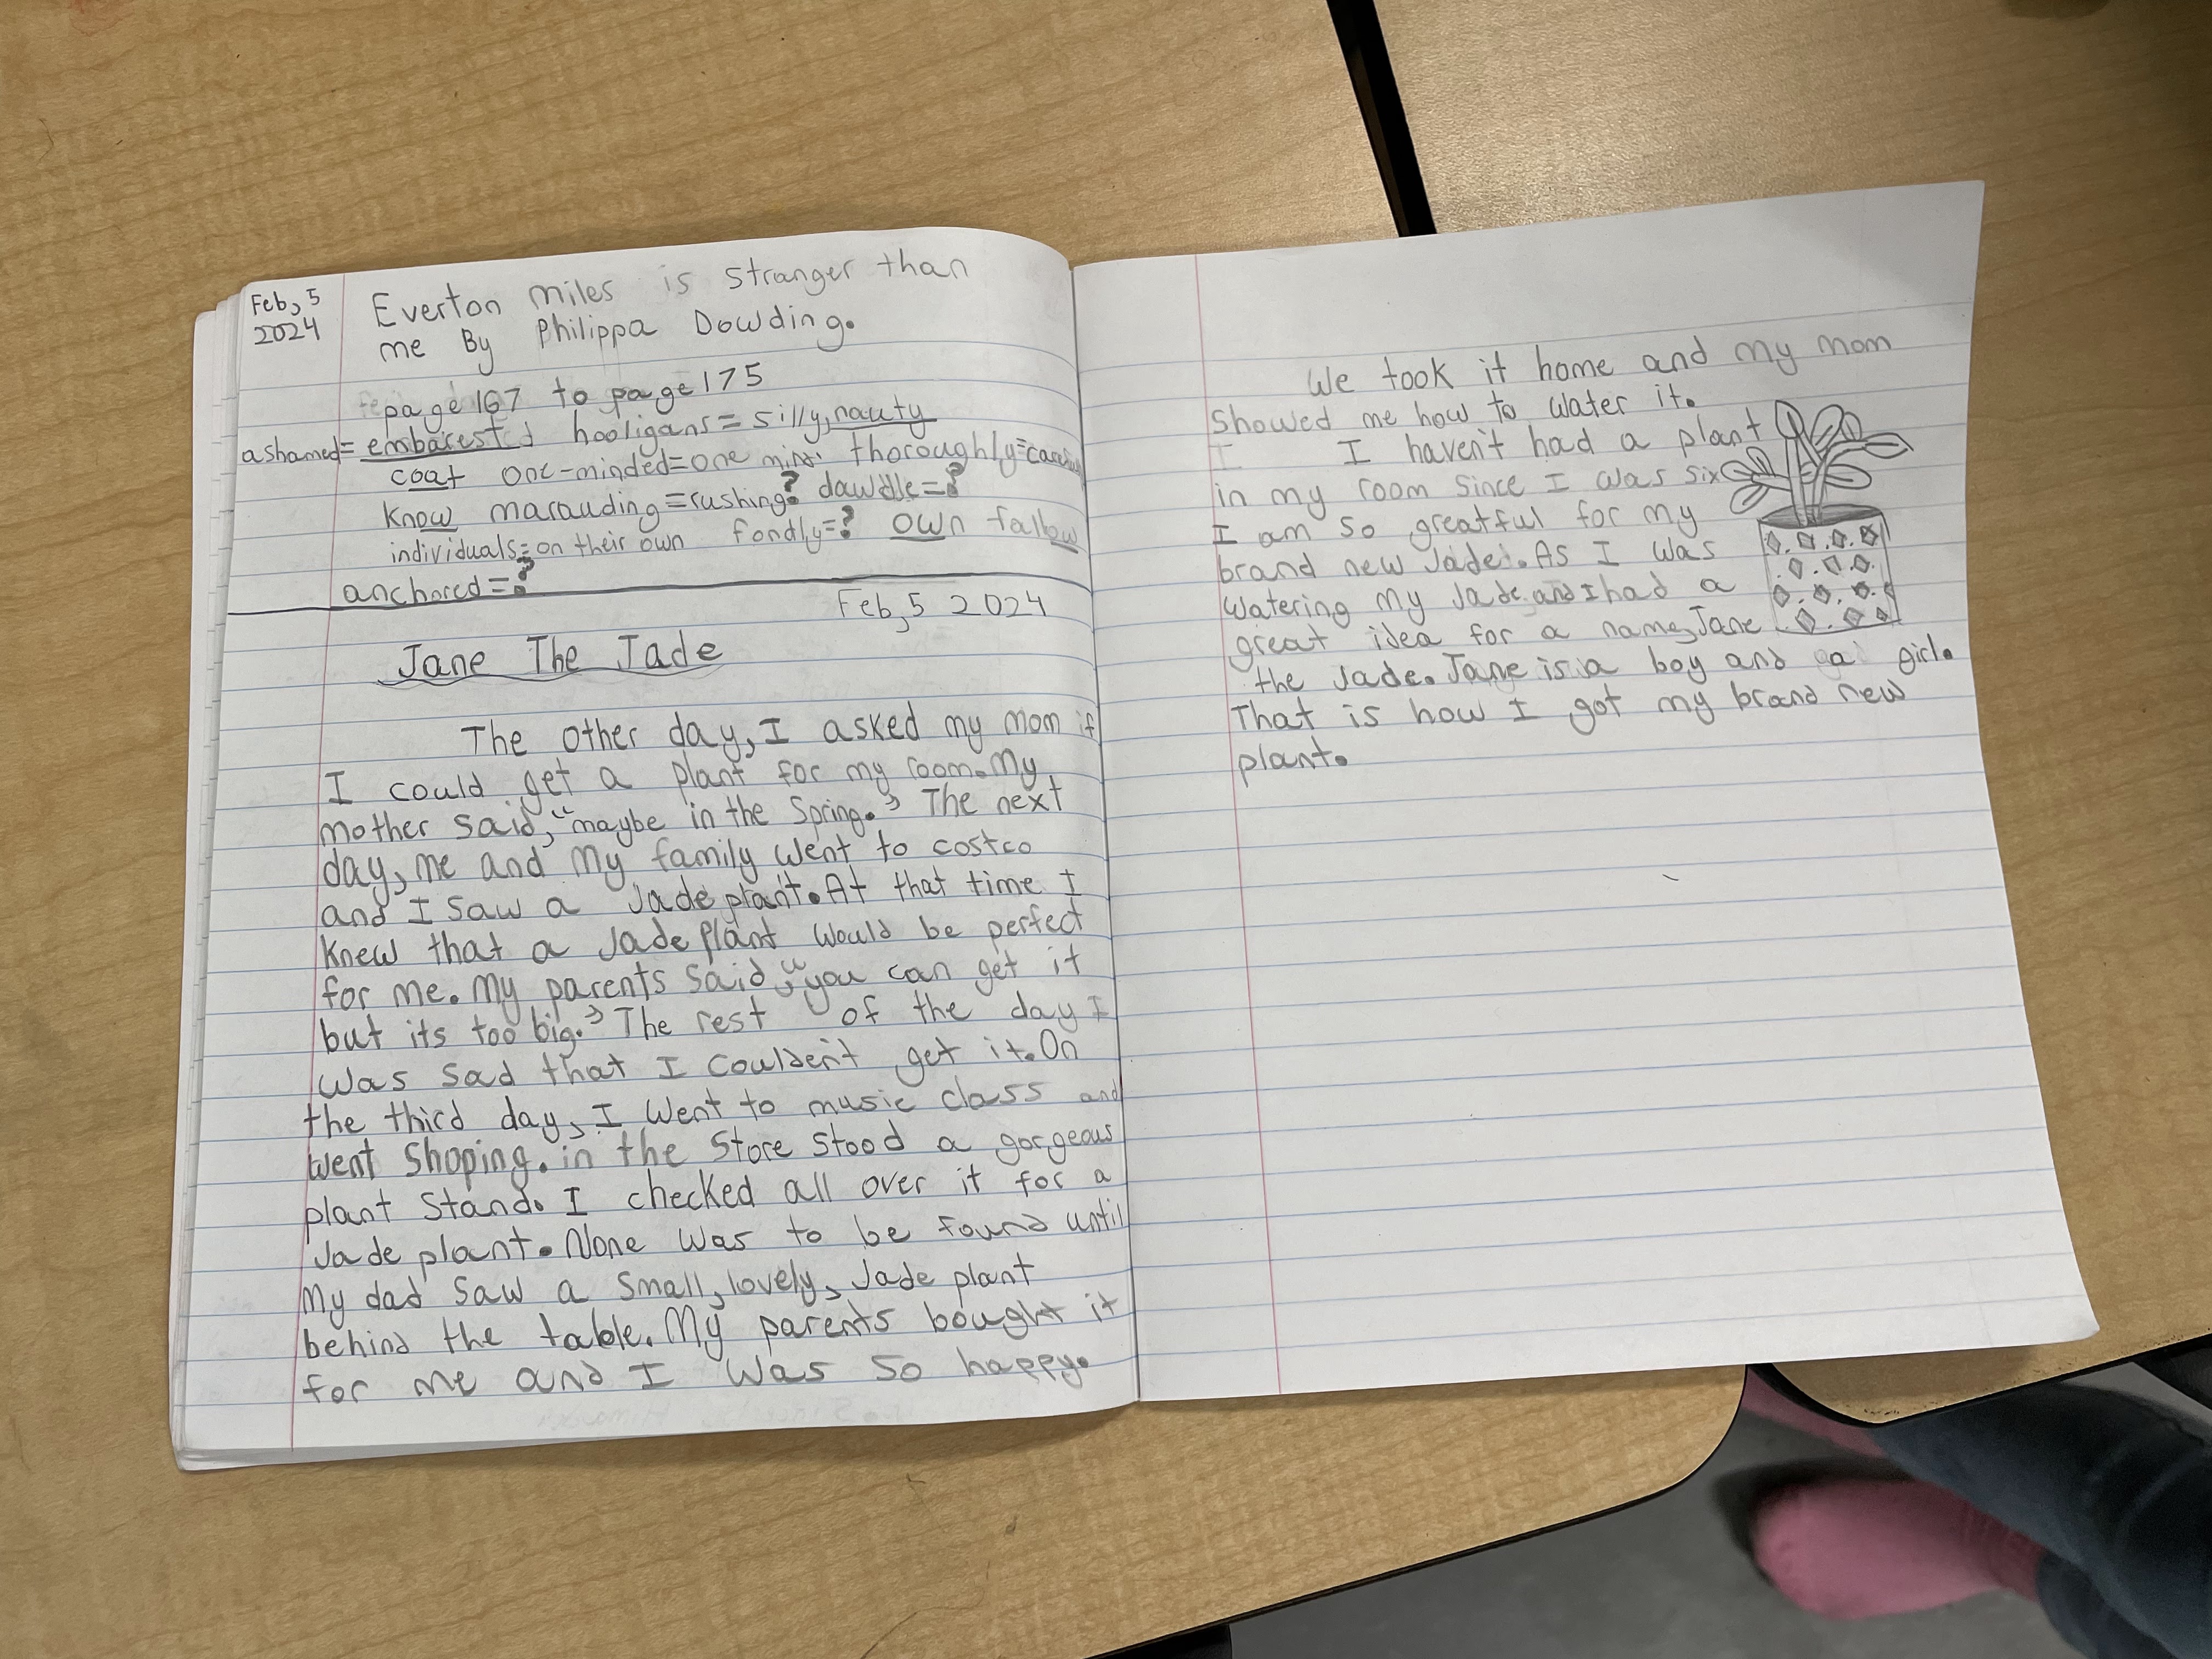 Feb, 5
2024
Everton miles is stranger than
me By Philippa Dowding.
page 167 to page 175
ashamed= embarested hooligans= silly, nauty
coat one-minded=one thoroughly=
know marauding=rushing? dawdle=?
individuals= on their own fondly=? own fallow
anchored=?
Feb, 5 2024
Jane The Jade
The other day, I asked my mom if
I could get a plant for my room. My
mother said, "maybe in the Spring." The next
day, me and my family went to costco
and I saw a Jade plant. At that time I
knew that a Jade plant would be perfect
for me. My parents said, "you can get it
but its too big." The rest of the day I
was sad that I couldent get it. On
the third day, I went to music class and
went shoping. in the store stood a gorgeous
plant stand. I checked all over it for a
Jade plant. None was to be found until
my dad saw a small, lovely, Jade plant
behind the table. My parents bought it
for me and I was so happy.
We took it home and my mom
showed me how to water it.
I haven't had a plant
in my room since I was six
I am so greatful for my
brand new Jade. As I was
watering my Jade and I had a
great idea for a name, Jane
the Jade. Jane is a boy and a girl.
That is how I got my brand new
plant.